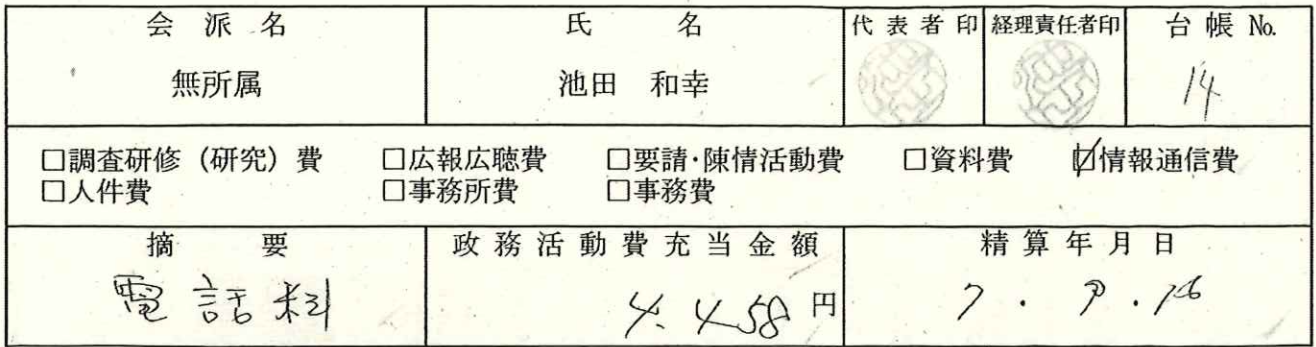 会派名 氏名 代表者印 経理責任者印 台帳No.
無所属 池田 和幸 14
□調査研修（研究）費 □広報広聴費 □要請・陳情活動費 □資料費 ☑情報通信費
□人件費 □事務所費 □事務費
摘要 政務活動費充当金額 精算年月日
電話料 4,458円 7.